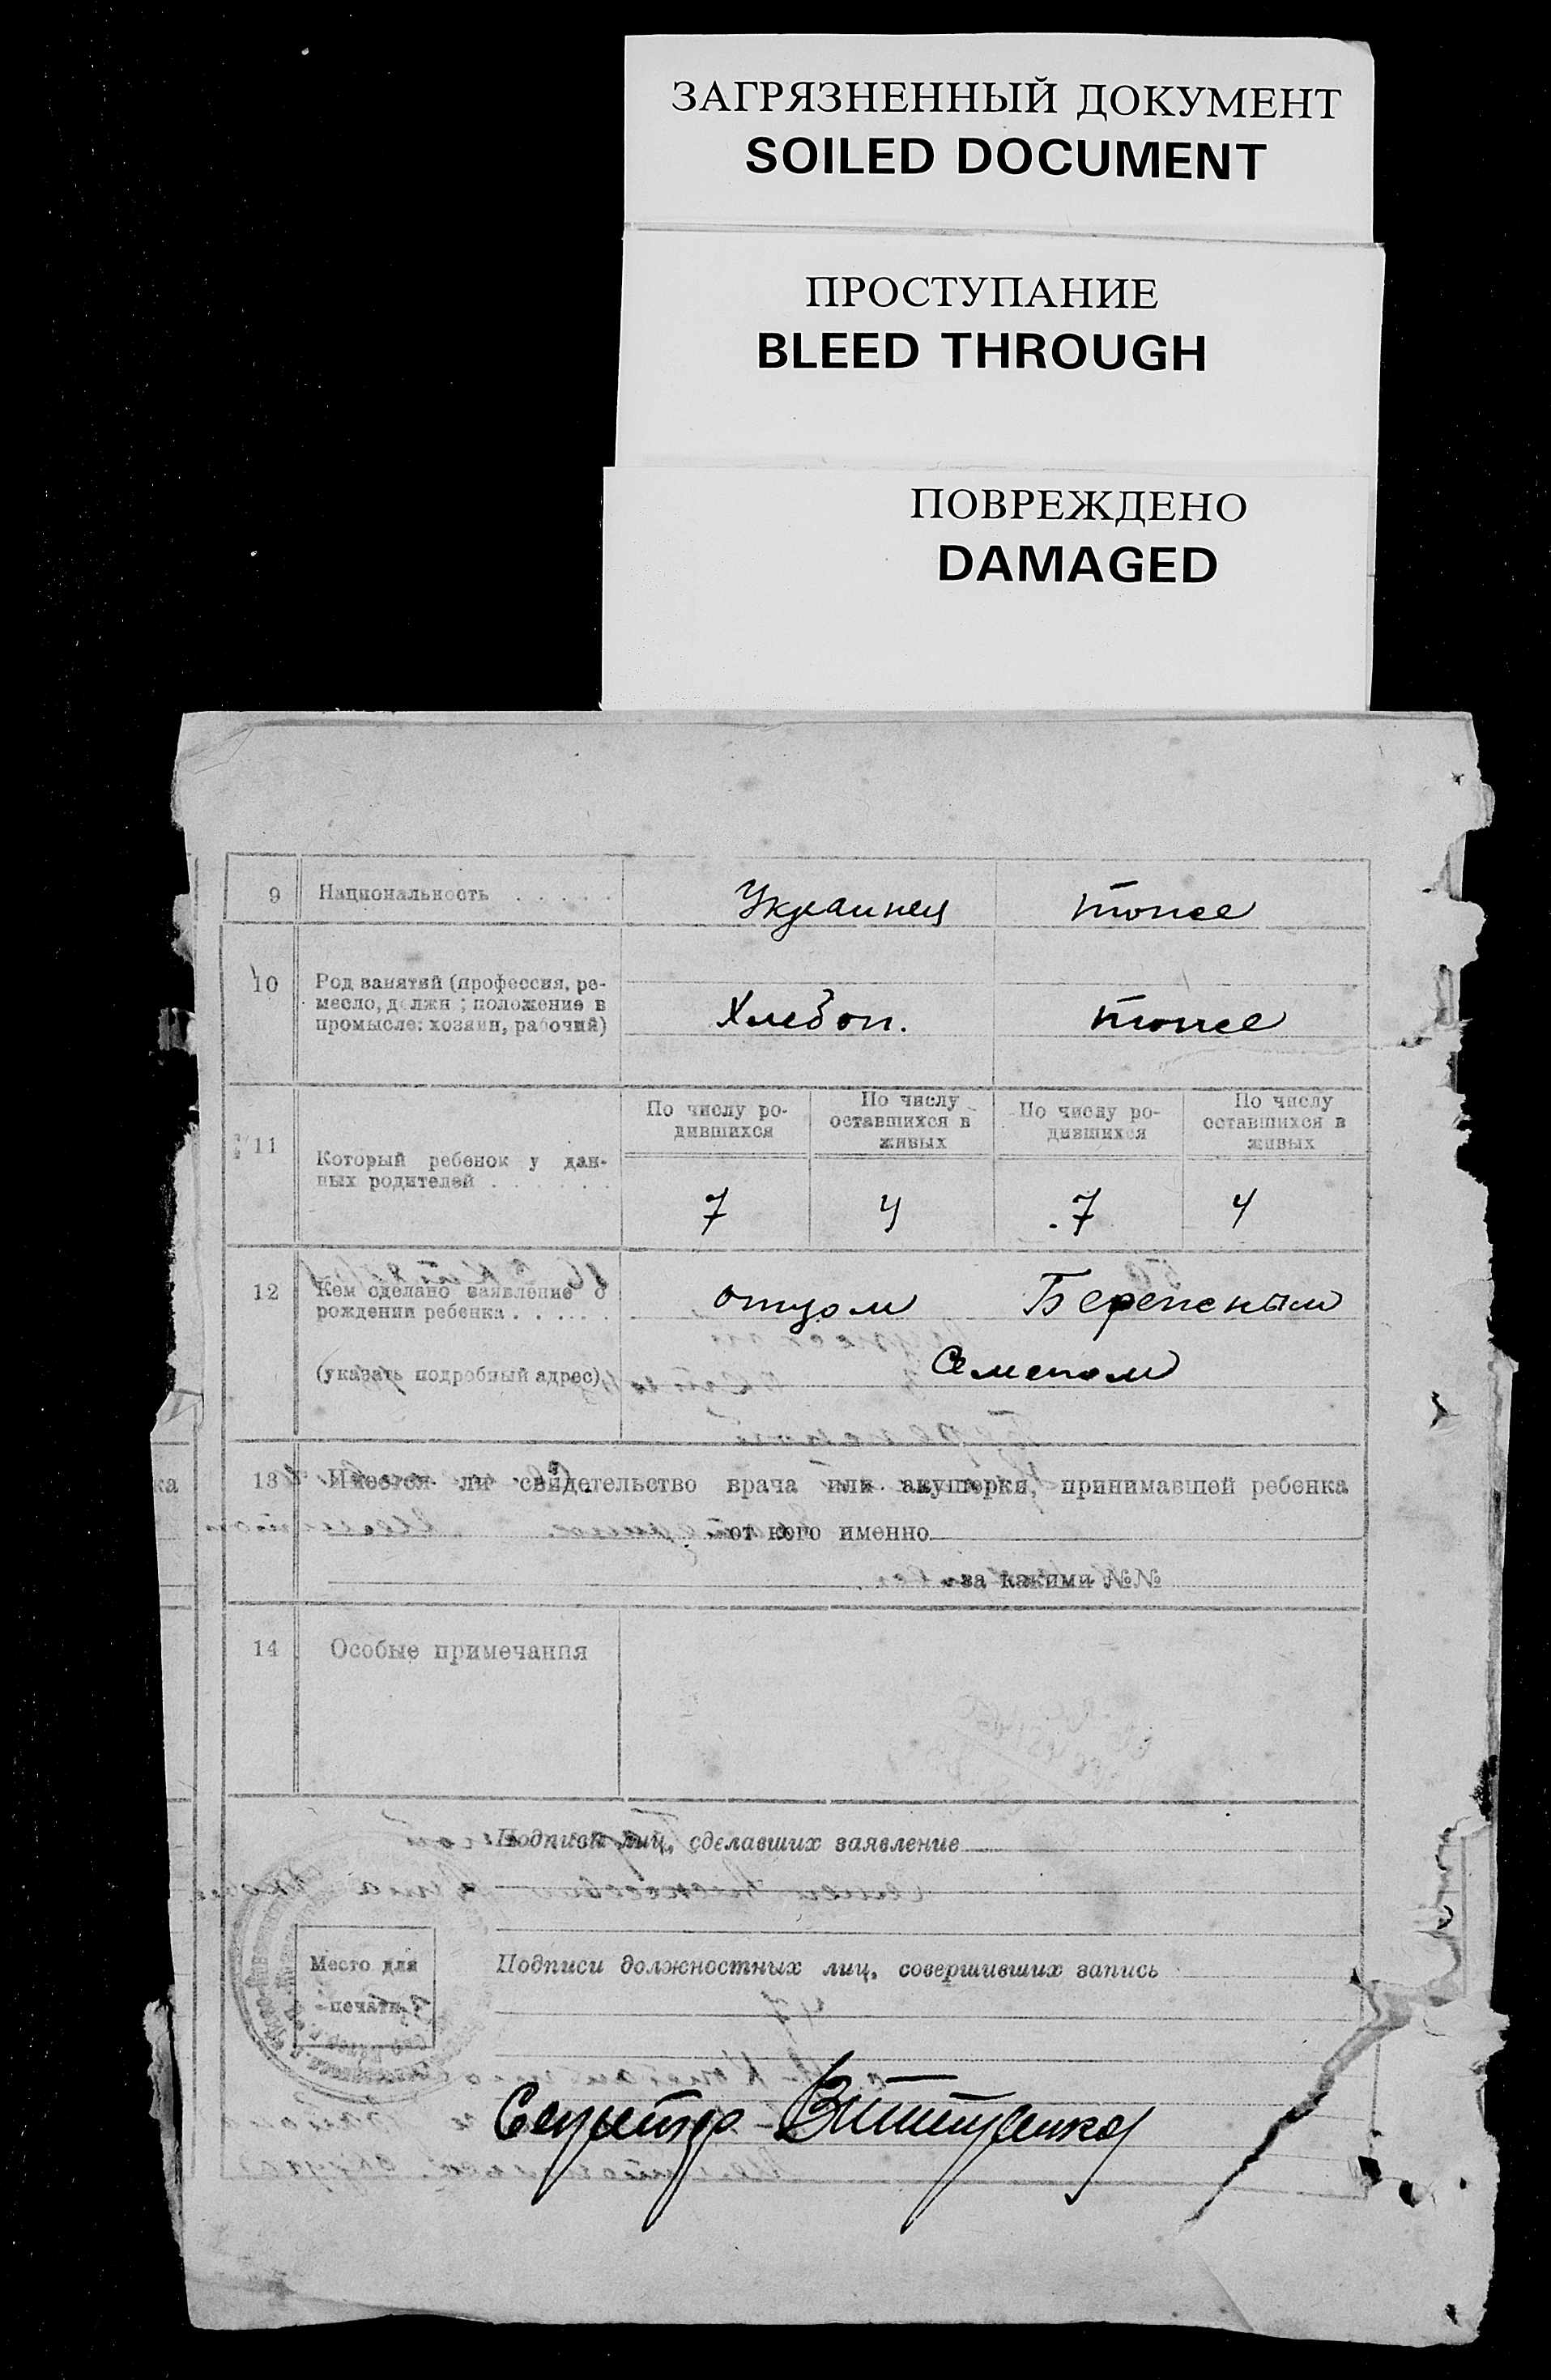 ЗАГРЯЗНЕННЫЙ ДОКУМЕНТ
SOILED DOCUMENT
ПРОСТУПАНИЕ
BLEED THROUGH
ПОВРЕЖДЕНО
DAMAGED
9 Национальность . . . . . Украинец тоже
10 Род занятий (профессия, ре-
месло, должн ; положение в
промысле: хозяин, рабочий) Хлебоп. тоже
По числу ро-
дившихся
По числу
оставшихся в
живых
По числу ро-
дившихся
По числу
оставшихся в
живых
11 Который ребенок у дан-
ных родителей . . . . . . 7 4 7 4
12 Кем сделано заявление о
рождении ребенка . . . . . отцом
(указать подробный адрес) Семеном
13 Имеется ли свидетельство врача или акушерки, принимавшей ребенка
от кого именно
за какими №№
14 Особые примечания
Подписи лиц, сделавших заявление
Место для
печати
Подписи должностных лиц, совершивших запись